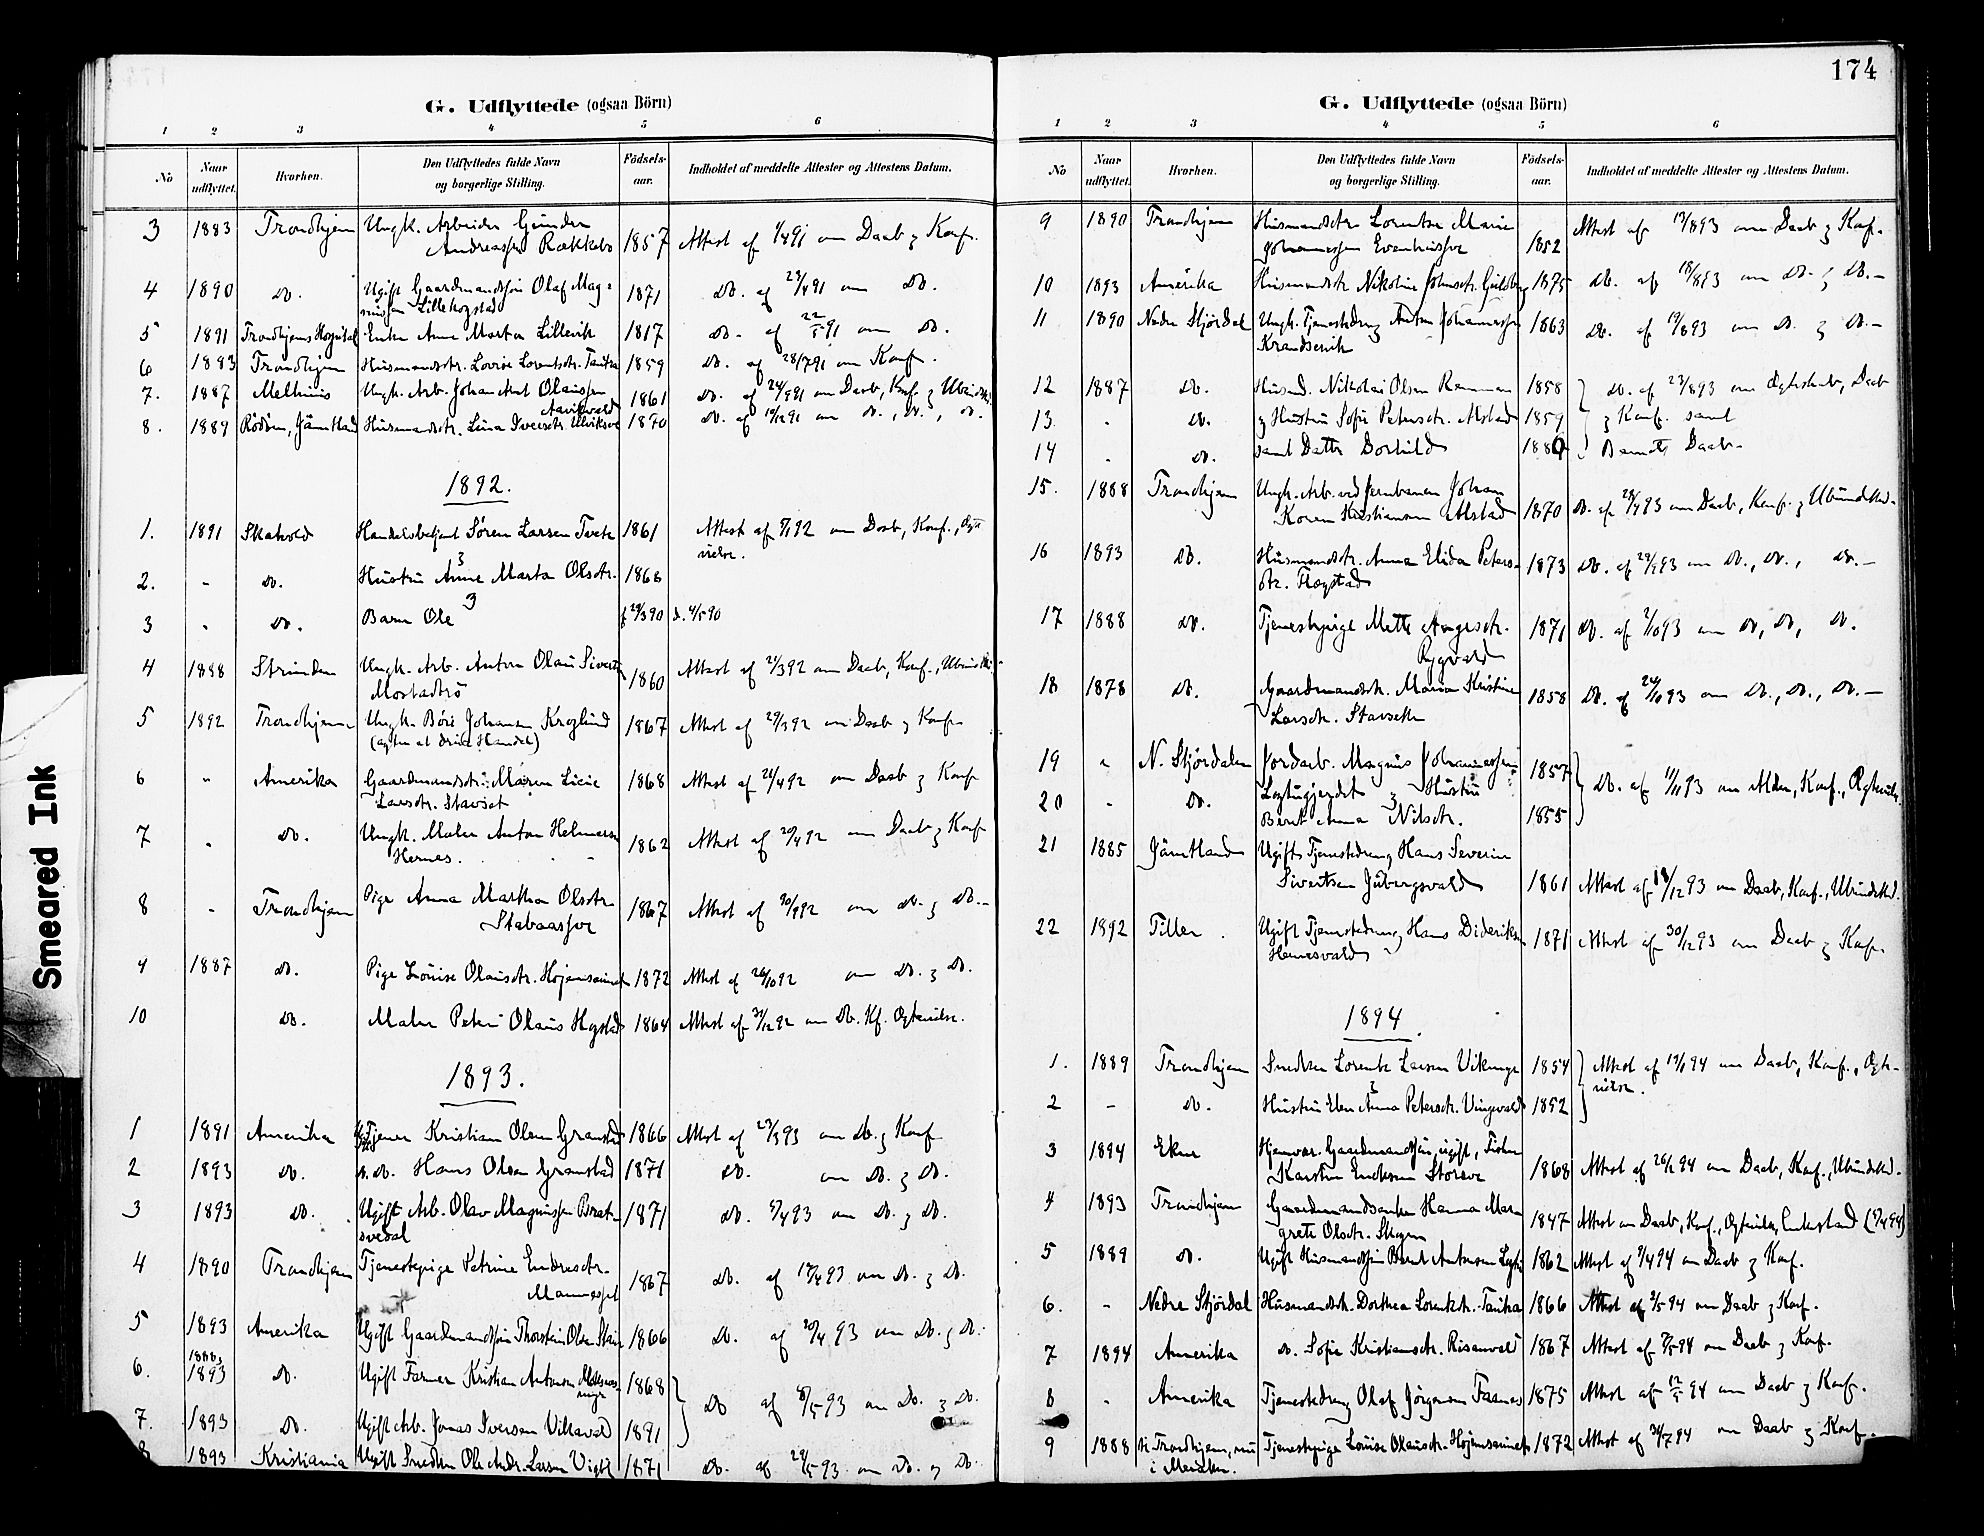 174
G. Udflyttede (ogsaa Börn)
1 2 3 4 5 6
No Naar udflyttet. Hvorhen. Den Udflyttedes fulde Navn og borgerlige Stilling. Födsels-aar. Indholdet af meddelte Attester og Attestens Datum.
3 1883 Trondhjem Ungk. Arbeider Gunder
Andreassen Rækkebo 1857 Attest af 1/4 91 om Daab og Konf.
4 1890 Do. Ugift Gaardmandssøn Olaf Mag-
nussen Lillehogstad 1871 Do. af 23/4 91 om Do.
5 1891 Trondhjems Hospital Enke Ane Marta Lillevik 1817 Do. af 22/5 91 om Do.
6 1883 Trondhjem Husmandsdtr. Lovise Lorentsdtr. 1859 Do. af 28/7 91 om Konf.
7. 1887 Melhus Ungk. Arb. Johan Olaussen
1861 Do. af om Daab, Konf. og
8. 1889 Rödön, Jämtland Husmandsdtr. Lina Iversdtr. 1870 Do. af om Do., Do., Do.
1892.
1. 1891 Skatvold Handelsbetjent Sören Larsen Tvete 1861 Attest af 92 om Daab, Konf., Ægte-
vielse.
2. - Do. Hustru Anne Marta Olsdtr. 1868
3 " Do. Barn Ole f 29/3 90 d. 4/5 90
4 1888 Strinden Ungk. Arb. Anton Olaus Sivert
1860 Attest af 21/3 92 om Daab, Konf.,
5 1892 Trondhjem Ungk. Böie Johansen Kroglund
(agter at drive Handel) 1867 Attest af 29/3 92 om Daab og Konf.
6 " Amerika Gaardmandsdtr. Maren Licie
Larsdtr. Stavset 1868 Attest af 21/4 92 om Daab og Konf
7 " Do. Ungk. Maler Anton Helmersen
Hernes. 1862 Attest af 92 om Daab og Konf
8 - Trondhjem Pige Anna Martha Olsdtr.
1867 Attest af 92 om Do. og Do.
9 1887 Do. Pige Louise Olausdtr. 1872 Attest af 26/10 92 om Do. og Do.
10 Do. Maler Peter Olaus Hogstad 1864 Attest af 31/12 92 om Db. Kf. Ægtevielse.
1893.
1 1891 Amerika Tjener Kristian Olsen Granstad 1866 Attest af 23/3 93 om Db. og Konf
2 1893 Do. Do. Hans Olsen Granstad 1871 Do. om Do. og Do.
3 1893 Do. Ugift Arb. Olav Magnussen Brat-
svedal 1871 Do. 93 om Do. og Do.
4 1890 Trondhjem Tjenestepige Petrine Endresdtr.
1867 Do. af 17/4 93 om Do. og Do.
5 1893 Amerika Ugift Gaardmandssøn Thorstein Olsen 1866 Do. af 20/4 93 om Do. og Do.
6. 1893 Do. Ugift Farmer Kristian Antonsen 1868
Do af 8/5 93 om Do. og Do.
7. 1893 Do. Ugift Arb. Jonas Iversen 1891
8 1893 Kristiania Ugift Snedker Ole Andr. Larsen 1871 Do. af 29/5 93 om Do. og Do.
G. Udflyttede (ogsaa Börn)
1 2 3 4 5 6
No Naar udflyttet. Hvorhen. Den Udflyttedes fulde Navn og borgerlige Stilling. Födsels-aar. Indholdet af meddelte Attester og Attestens Datum.
9 1890 Trondhjem Husmandsdtr. Lorentse Marie
Johannessen 1852 Attest af 17/8 93 om Daab og Konf.
10 1893 Amerika Husmandsdtr. Nikoline Johnsdtr. 1875 Do. af 18/8 93 om Do. og Do.
11 1890 Nedre Stjördal Ungk. Tjenestedreng Anton Johannessen
Krandsevik 1863 Do. af 19/8 93 om Do. og Do.
12 1887 Do. Husmd. Nikolai Olsen 1858 Do. af 23/8 93 om Ægteskab, Daab
13. - Do. og Hustru Sofie Petersdtr. Alstad 1859 og Konf. samt
14 - Do. samt Datter Dorhild 188 Barnets Daab
15. 1888 Trondhjem Ungk. Arb. ved Jernbanen Johan
Koren Kristiansen Alstad 1870 Do. af 28/9 93 om Daab, Konf. og
16 1893 Do. Husmandsdtr. Anna Elida Peters-
dtr. Hogstad 1873 Do. af 29/9 93 om Do., Do., Do.
17 1888 Do. Tjenestepige Mette Aagesdtr.
1871 Do. af 2/10 93 om Do, Do, Do.
18 1878 Do. Gaardmandsdtr. Maria Kristine
Larsdtr. Stavseth 1858 Do. af 24/10 93 om Do., Do., Do.
19 " N. Stjördalen Jordarb. Magnus Johannessen 1857
20 - Do. og Hustru
Berit Anna Nilsdtr. 1855 Do. af 11/11 93 om Alder, Konf.,
21 1885 Jämtland Ugift Tjenestedreng Hans Severin
Sivertsen 1861 Attest af /12 93 om Daab, Konf.,
22 1892 Tiller Ugift Tjenestedreng Hans Dideriksen
Hernesvald 1871 Attest af 30/12 93 om Daab og Konf.
1894
1. 1889 Trondhjem Snedker Lorents Larsen 1854 Attest af 94 om Daab, Konf., Ægte-
vielse.
2 - Do. Hustru Anna Petersdtr. 1852
3 1894 Gaardmandssøn, ugift,
Karsten Eriksen 1868 Attest af 94 om Daab, Konf.,
4 1893 Trondhjem Gaardmandsenke Hanna Mar-
grete Olsdtr. 1847 Attest om Daab, Konf., Ægtevielse, Enkestand
5 1889 Do. Ugift Husmandssøn Bernt Antonsen 1862 Attest af 94 om Daab og Konf.
6. - Nedre Stjördal Husmandsdtr. Dorthea Lorentsdtr. 1866 Attest af 2/5 94 om Daab og Konf.
7 1894 Amerika Do. Sofie Kristiansdtr. Risanvald 1867 Attest af 94 om Daab og Konf.
8 - Amerika Tjenestedreng Olaf Jörgensen 1875 Attest af 12/5 94 om Daab og Konf.
9 1888 til Trondhjem, nu
i Meraker. Tjenestepige Louise Olausdtr. 1872 Attest af 94 om Daab og Konf.
Smeared Ink